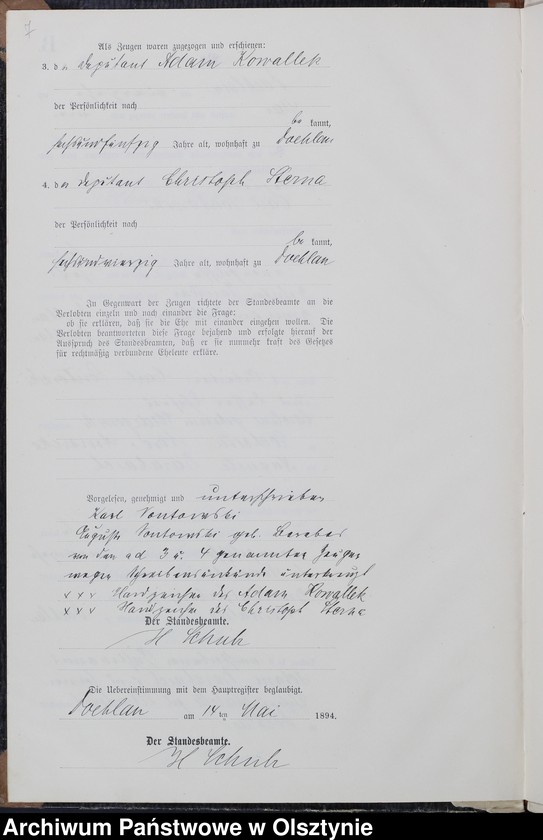 7
Als Zeugen waren zugezogen und erschienen:
3. der deputant Adam Kowallek
der Persönlichkeit nach
be kannt,
sechsundfunfzig Jahre alt, wohnhaft zu Doehlau
4. der deputant Christoph Sterna
der Persönlichkeit nach
be kannt,
sechsundvierzig Jahre alt, wohnhaft zu Doehlau
In Gegenwart der Zeugen richtete der Standesbeamte an die
Verlobten einzeln und nach einander die Frage:
ob sie erklären, daß sie die Ehe mit einander eingehen wollen. Die
Verlobten beantworteten diese Frage bejahend und erfolgte hierauf der
Ausspruch des Standesbeamten, daß er sie nunmehr kraft des Gesetzes
für rechtmäßig verbundene Eheleute erkläre.
Vorgelesen, genehmigt und unterschrieben
Karl Sontowski
Auguste Sontowski geb.
von den ad 3 u. 4 genannten Zeugen
wegen Schreibensunkunde unterkreuzt
x x x Handzeichen des Adam Kowallek
x x x Handzeichen des Christoph Sterna
Der Standesbeamte.
H Schuh
Die Uebereinstimmung mit dem Hauptregister beglaubigt.
Doehlau am 14 ten Mai 1894.
Der Standesbeamte.
H Schuh
Archiwum Państwowe w Olsztynie